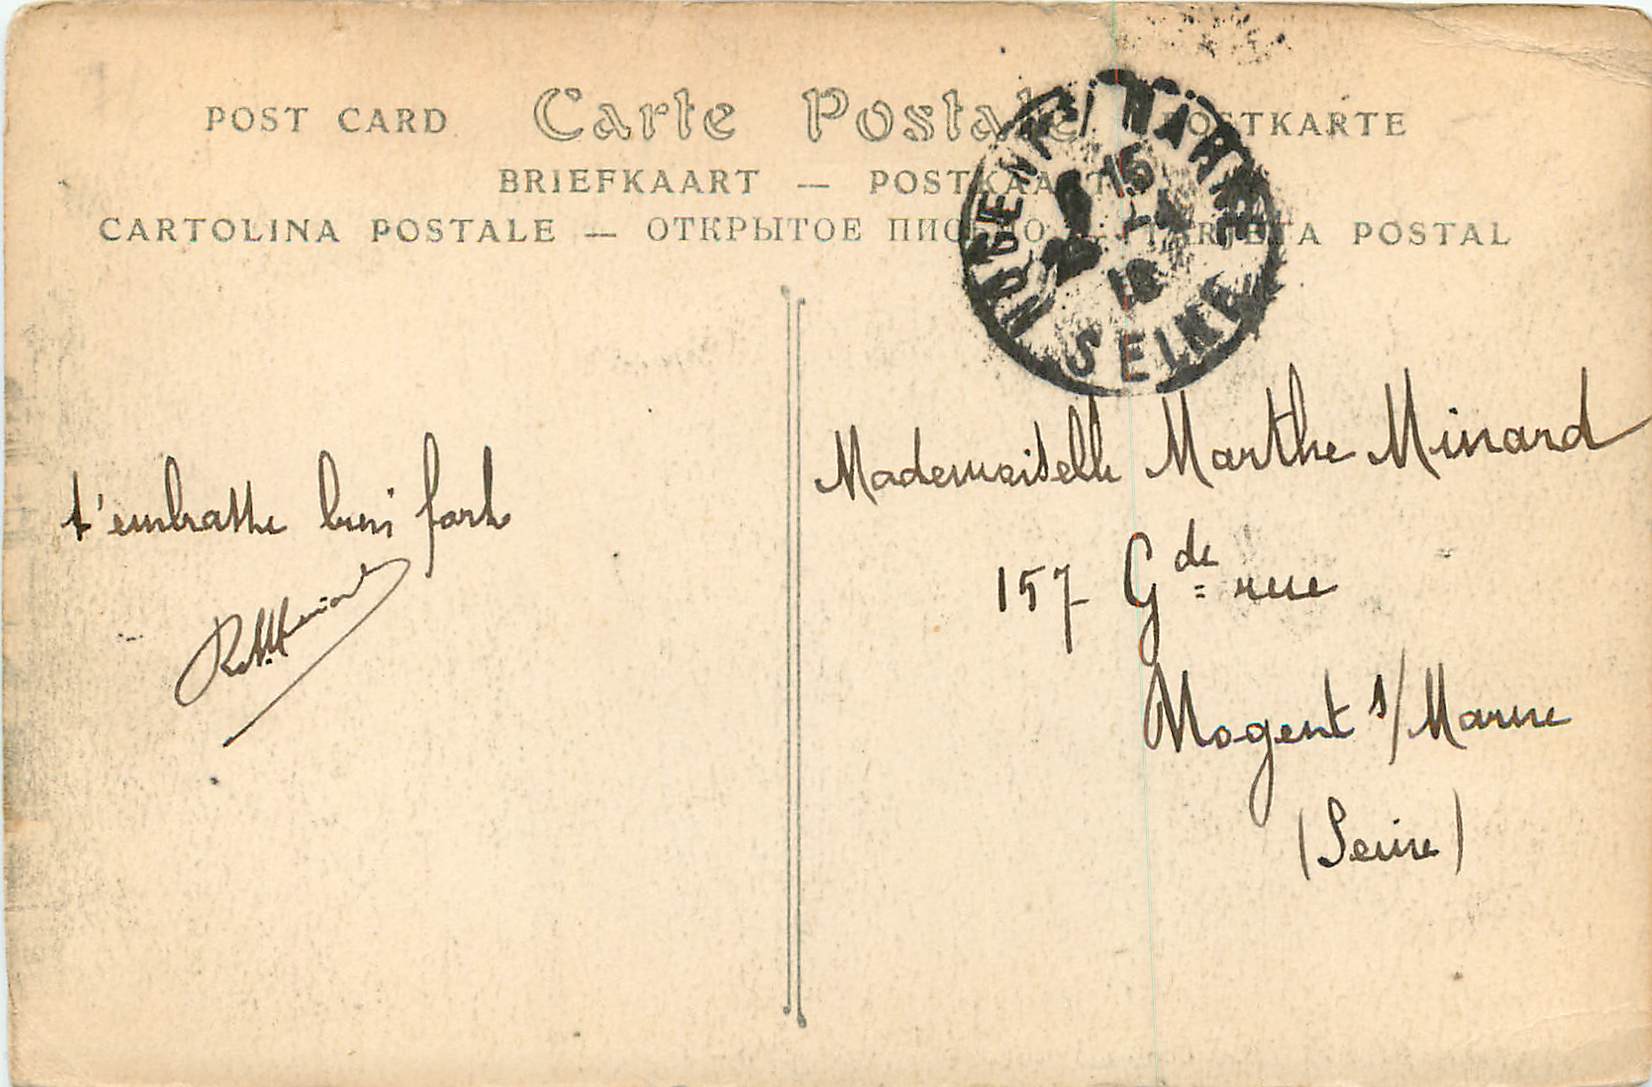 POST CARD Carte Postale POSTKARTE
BRIEFKAART — POSTKAART
CARTOLINA POSTALE — ОТКРЫТОЕ ПИСЬМО — TARJETA POSTAL
NOGENT S/ MARNE
15
SEINE
t'embrasse bien fort
Mademoiselle Marthe Minard
157 Gde rue
Nogent s/Marne
(Seine)